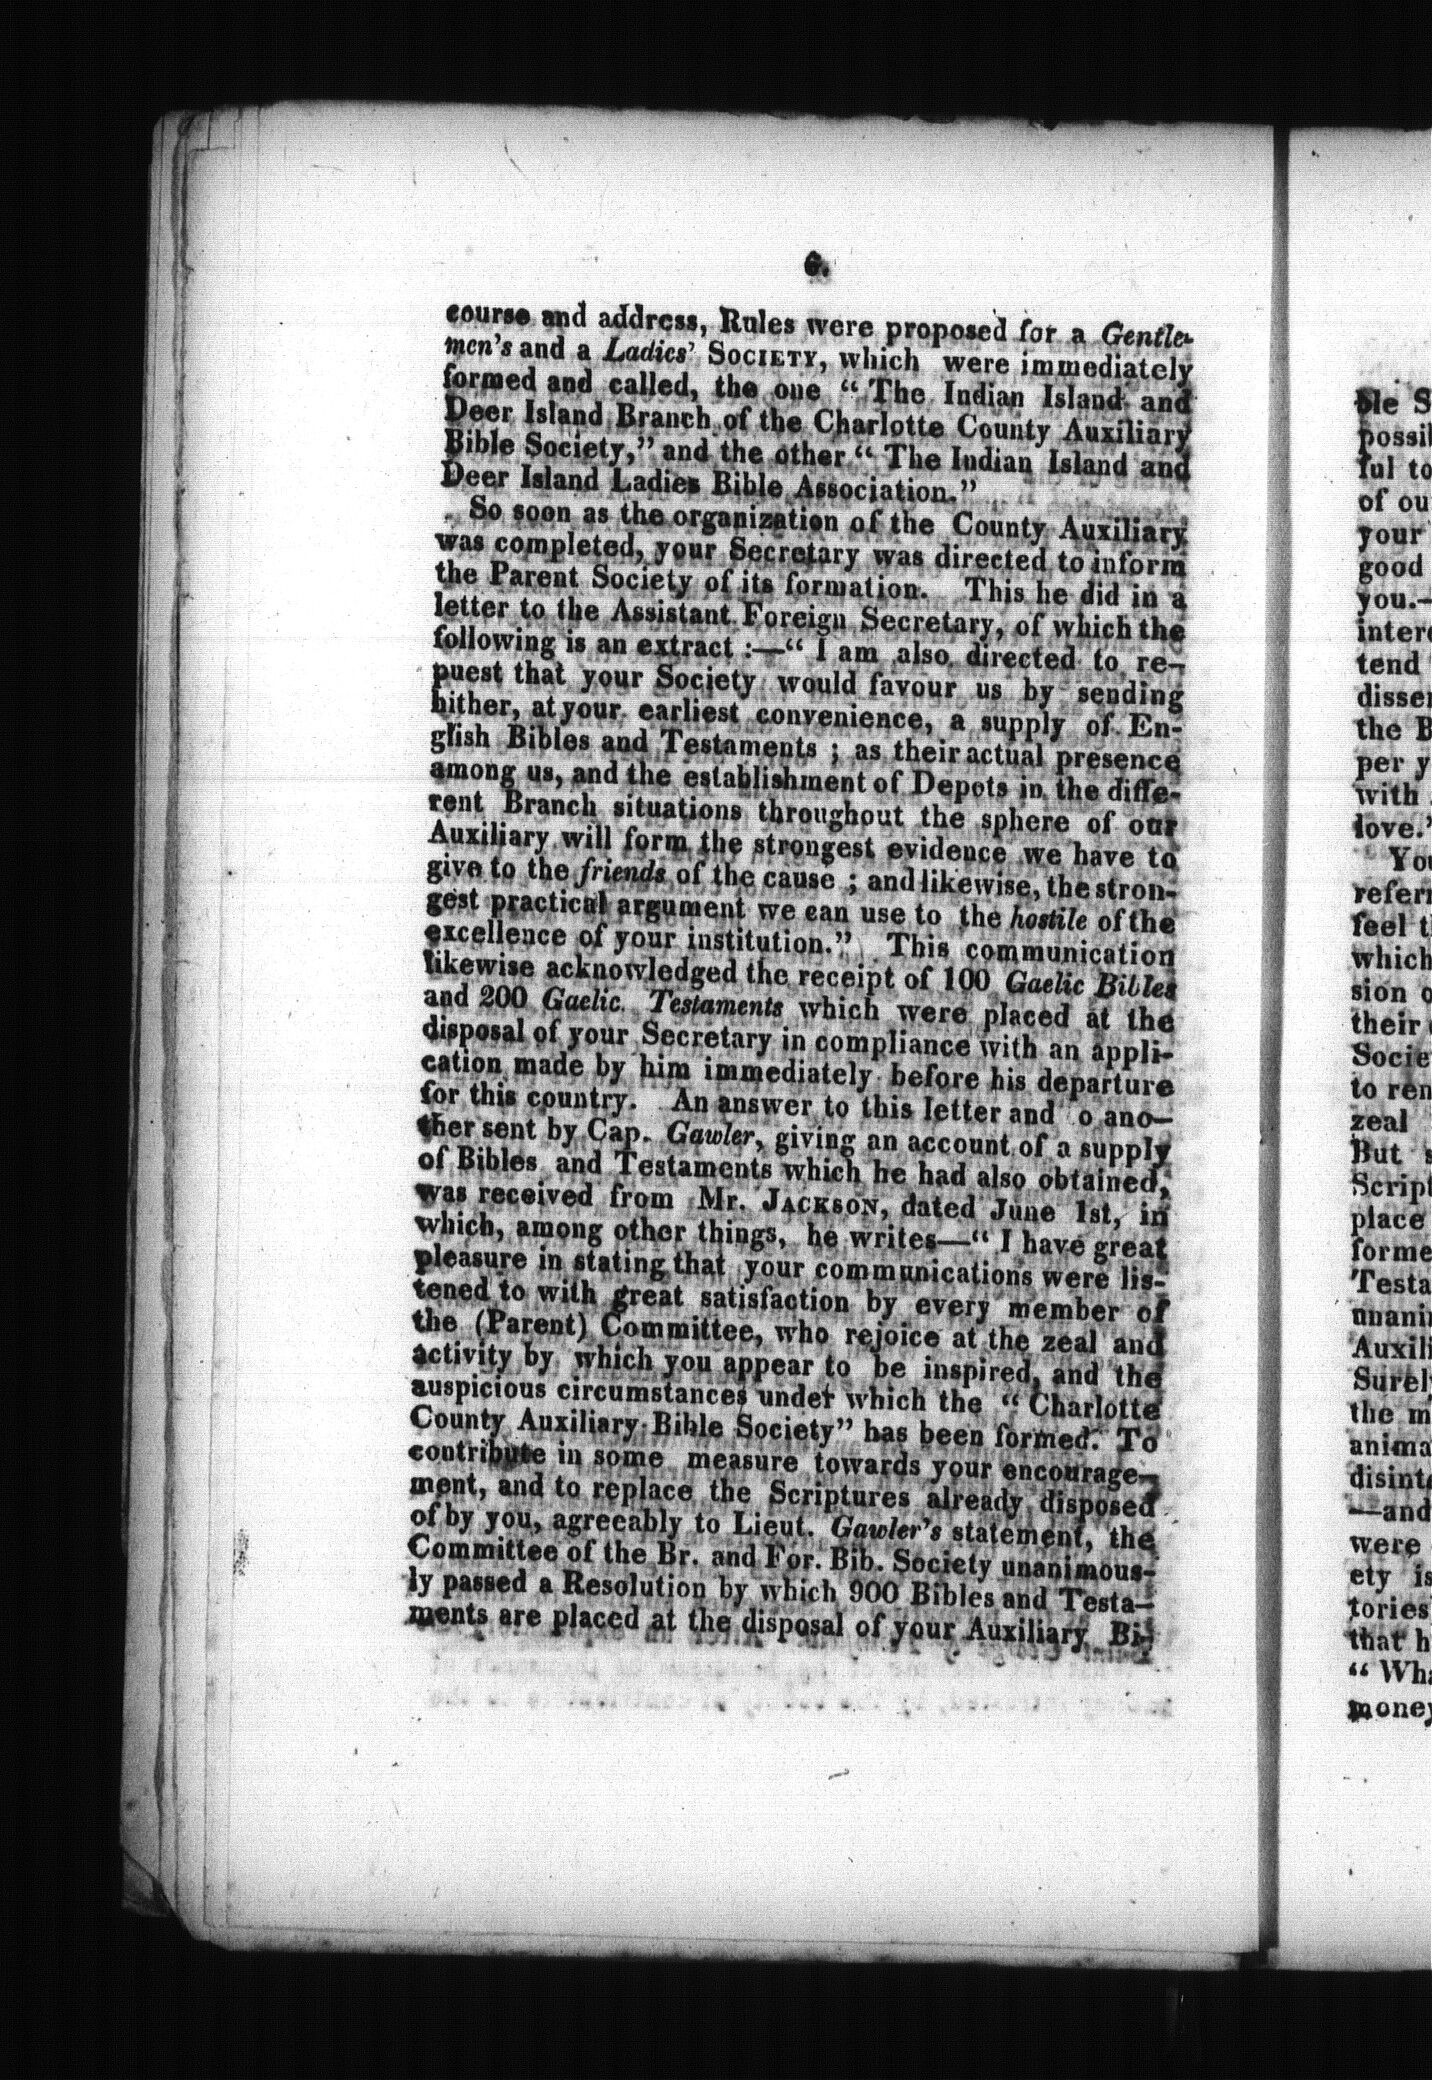 6.
course and address, Rules were proposed for a Gentle-
men's and a Ladies' SOCIETY, which were immediately
formed and called, the one “The Indian Island and
Deer Island Branch of the Charlotte County Auxiliary
Bible Society,” and the other “The Indian Island and
Deer Island Ladies Bible Association.”
So soon as the organization of the County Auxiliary
was completed, your Secretary was directed to inform
the Parent Society of its formation. This he did in a
letter to the Assistant Foreign Secretary, of which the
following is an extract :—“I am also directed to re-
puest that your Society would favour us by sending
hither, at your earliest convenience, a supply of En-
glish Bibles and Testaments ; as their actual presence
among us, and the establishment of Depots in the diffe-
rent Branch situations throughout the sphere of our
Auxiliary will form the strongest evidence we have to
give to the friends of the cause ; and likewise, the stron-
gest practical argument we can use to the hostile of the
excellence of your institution.” This communication
likewise acknowledged the receipt of 100 Gaelic Bibles
and 200 Gaelic Testaments which were placed at the
disposal of your Secretary in compliance with an appli-
cation made by him immediately before his departure
for this country. An answer to this letter and o ano-
ther sent by Cap. Gawler, giving an account of a supply
of Bibles and Testaments which he had also obtained,
was received from Mr. JACKSON, dated June 1st, in
which, among other things, he writes—“I have great
pleasure in stating that your communications were lis-
tened to with great satisfaction by every member of
the (Parent) Committee, who rejoice at the zeal and
activity by which you appear to be inspired, and the
auspicious circumstances under which the “Charlotte
County Auxiliary Bible Society” has been formed. To
contribute in some measure towards your encourage-
ment, and to replace the Scriptures already disposed
of by you, agreeably to Lieut. Gawler's statement, the
Committee of the Br. and For. Bib. Society unanimous-
ly passed a Resolution by which 900 Bibles and Testa-
ments are placed at the disposal of your Auxiliary Bi-
ble S
possib
ful to
of ou
your
good
you.—
inter
tend
disse
the B
per y
with
love.”
You
refer
feel t
which
sion o
their
Socie
to ren
zeal
But s
Script
place
forme
Testa
unani
Auxili
Surely
the m
anima
disint
—and
were
ety is
tories
that h
“Wha
money